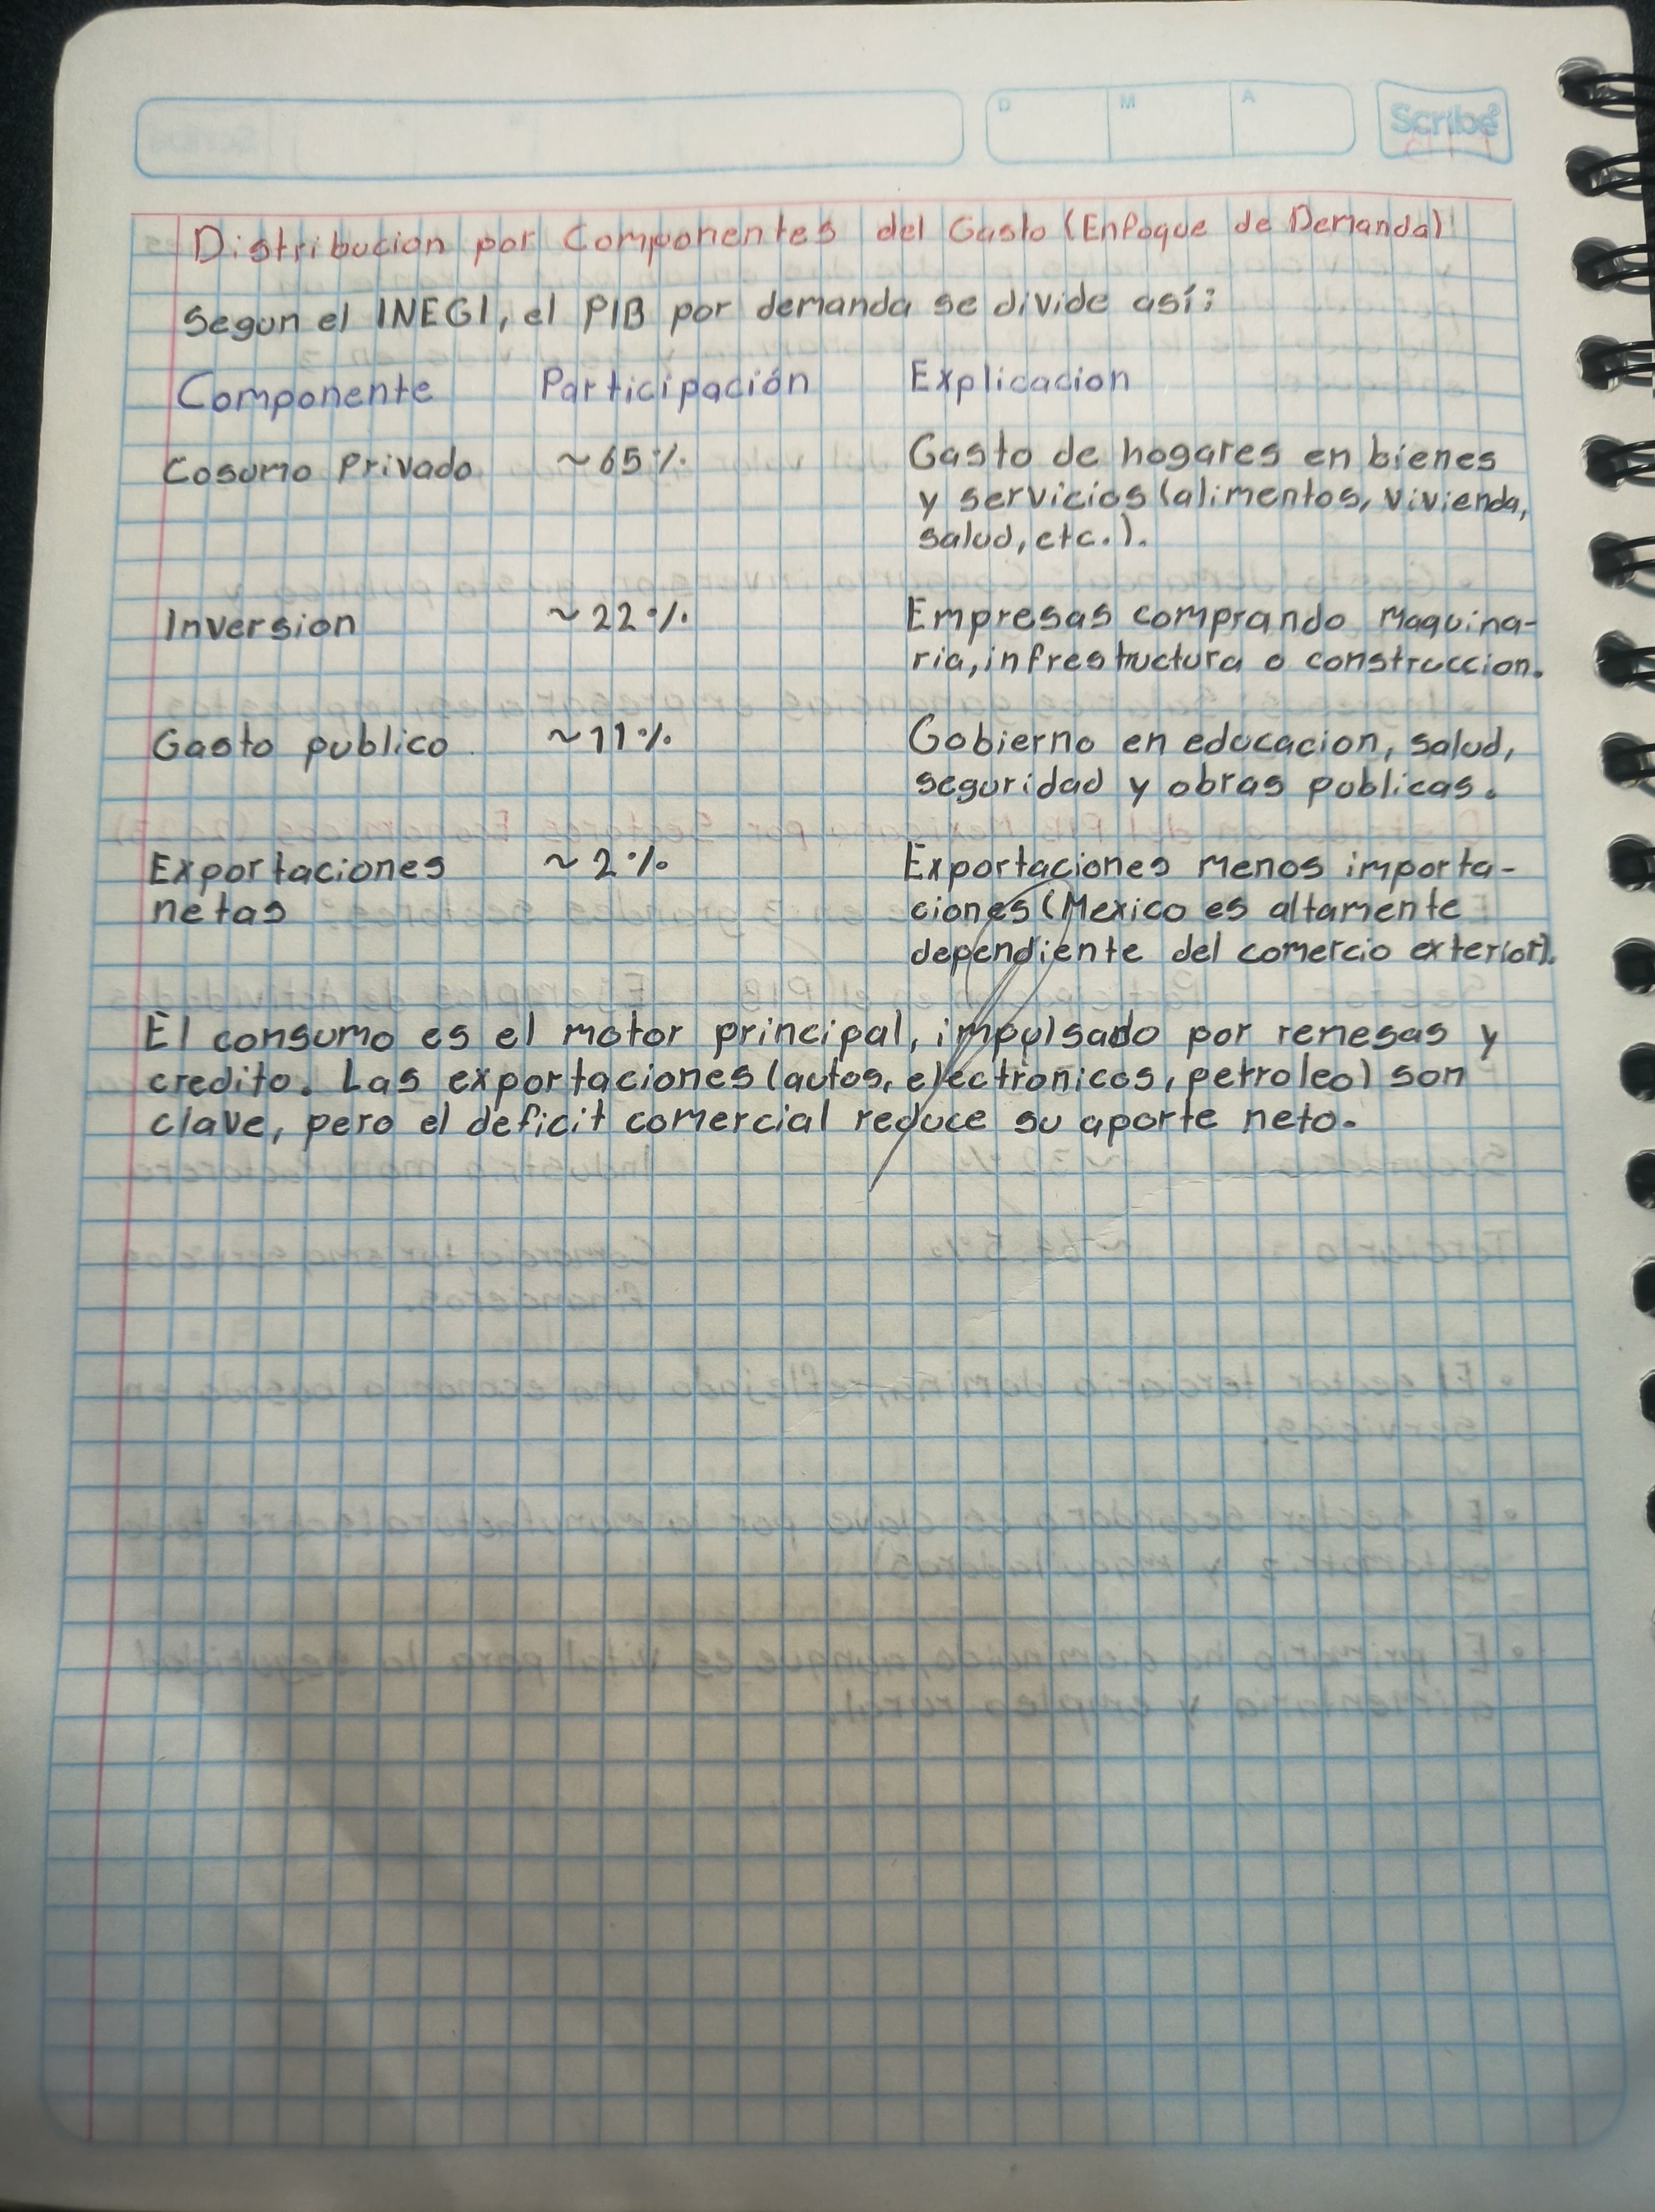 D M A Scribe
Distribucion por Componentes del Gasto (Enfoque de Demanda)
Segun el INEGI, el PIB por demanda se divide así:
Componente Participación Explicacion
Cosumo Privado ~65% Gasto de hogares en bienes
y servicios (alimentos, vivienda,
salud, etc.).
Inversion ~22% Empresas comprando maquina-
ria, infrestructura o construccion.
Gasto publico ~11% Gobierno en educacion, salud,
seguridad y obras publicas.
Exportaciones ~2% Exportaciones menos importa-
netas ciones (Mexico es altamente
dependiente del comercio exterior).
El consumo es el motor principal, impulsado por remesas y
credito. Las exportaciones (autos, electronicos, petroleo) son
clave, pero el deficit comercial reduce su aporte neto.